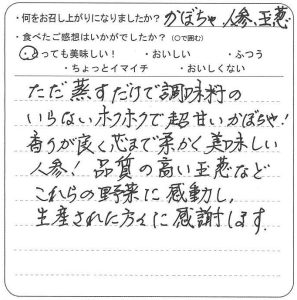 ・何をお召し上がりになりましたか？ かぼちゃ 人参、玉葱
・食べたご感想はいかがでしたか？（○で囲む）
・とっても美味しい！ ・おいしい ・ふつう
・ちょっとイマイチ ・おいしくない
ただ蒸すだけで調味料の
いらないホクホクで超甘いかぼちゃ！
香りが良く芯まで柔かく美味しい
人参！ 品質の高い玉葱など
これらの野菜に感動し、
生産された方々に感謝します。